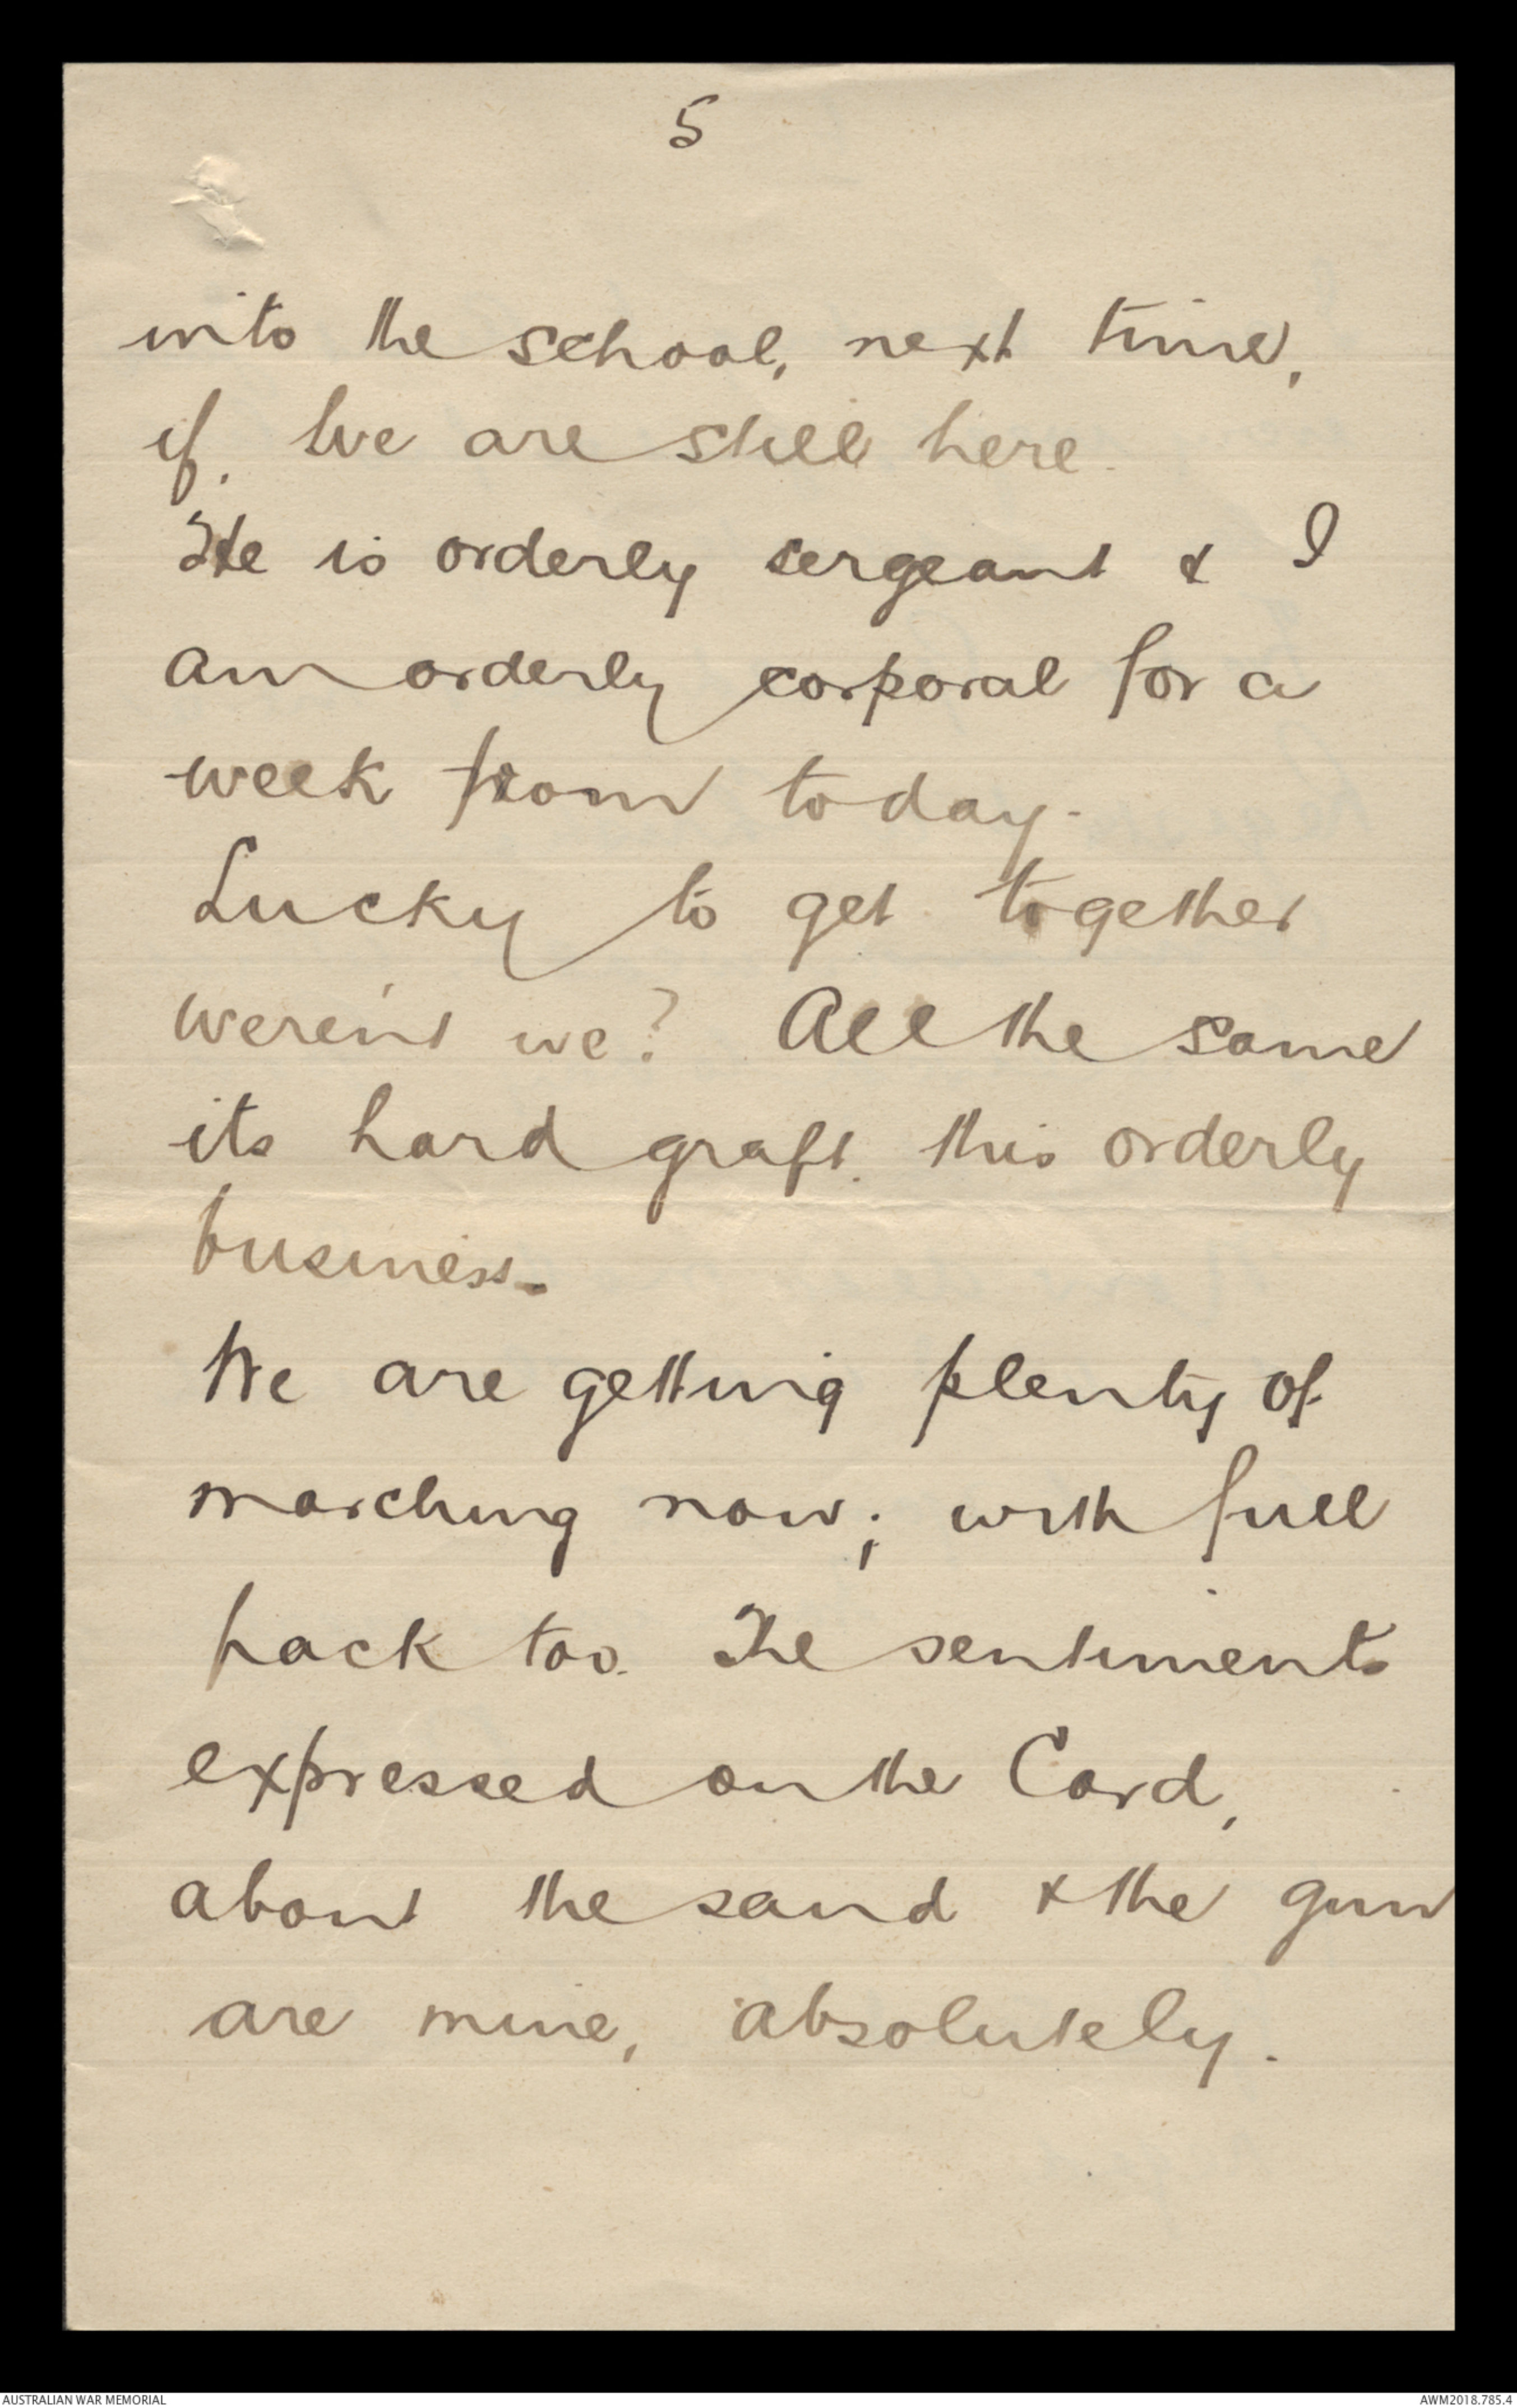 5
into the school, next time,
if. we are still here.
He is orderly sergeant & I
am orderly corporal for a
week from today.
Lucky to get together
weren't we? All the same
its hard graft. this orderly
business.
We are getting plenty of
marching now; with full
pack too. The sentiments
expressed on the Card,
about the sand & the gun
are mine, absolutely.
AUSTRALIAN WAR MEMORIAL
AWM2018.785.4